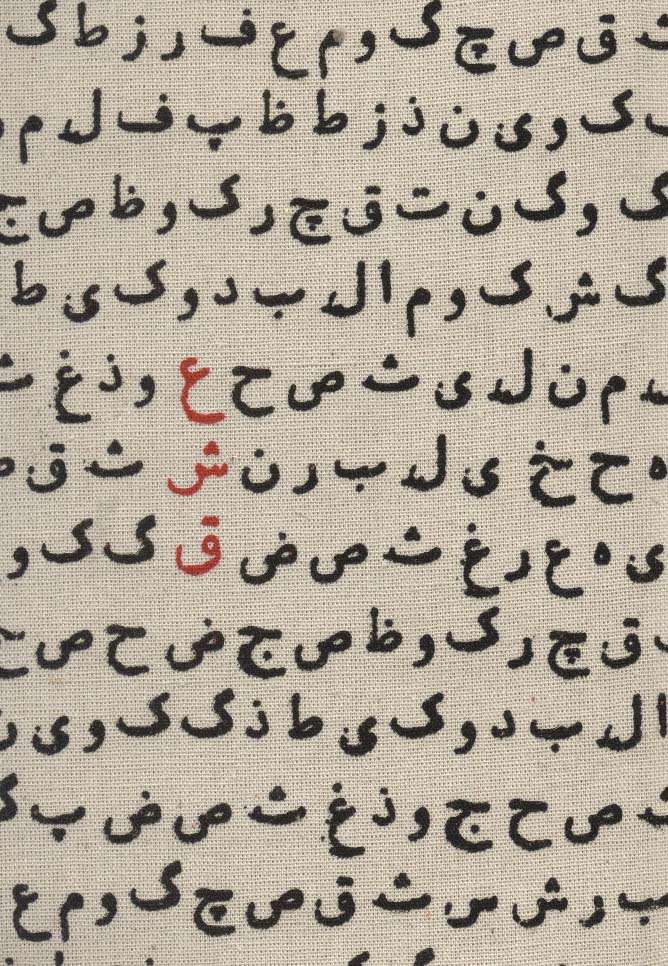 ق ص چ گ و م ع ف ر ز ط گ
ک و ی ن ذ ز ط ظ پ ف ل م
گ و گ ن ت ق چ ر گ و ظ ص
گ ش ک و م ا ل ب د و ک ی ط
م ن ل ی ث ص ح ع و ذ غ ث
ه ح خ ی ل ب ر ن ش ث ق
ی ه ع ر غ ث ص ض ق گ ک و
ق چ ر گ و ظ ص ج ض ح ص
ا ل ب د و ک ی ط ذ گ ک و ی
ص ح ج و ذ غ ث ص ض پ
ب ر ش س ث ق ص چ گ و م ع